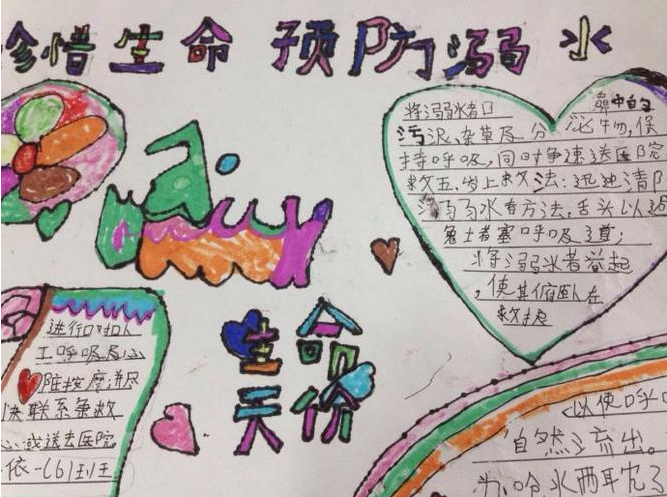 珍惜生命 预防溺水
将溺水者口
鼻中的
污泥、杂草及分泌物,保
持呼吸,同时争速送医院
救五、岸上救法:迅速清除
溺水者方法,舌头以
免者塞呼吸道;
将溺水者举起
,使其俯卧在
救
生命
天价
进行口对
工呼吸及心
脏按摩,并尽
快联系争救
心或送去医院
以使呼
自然流出。